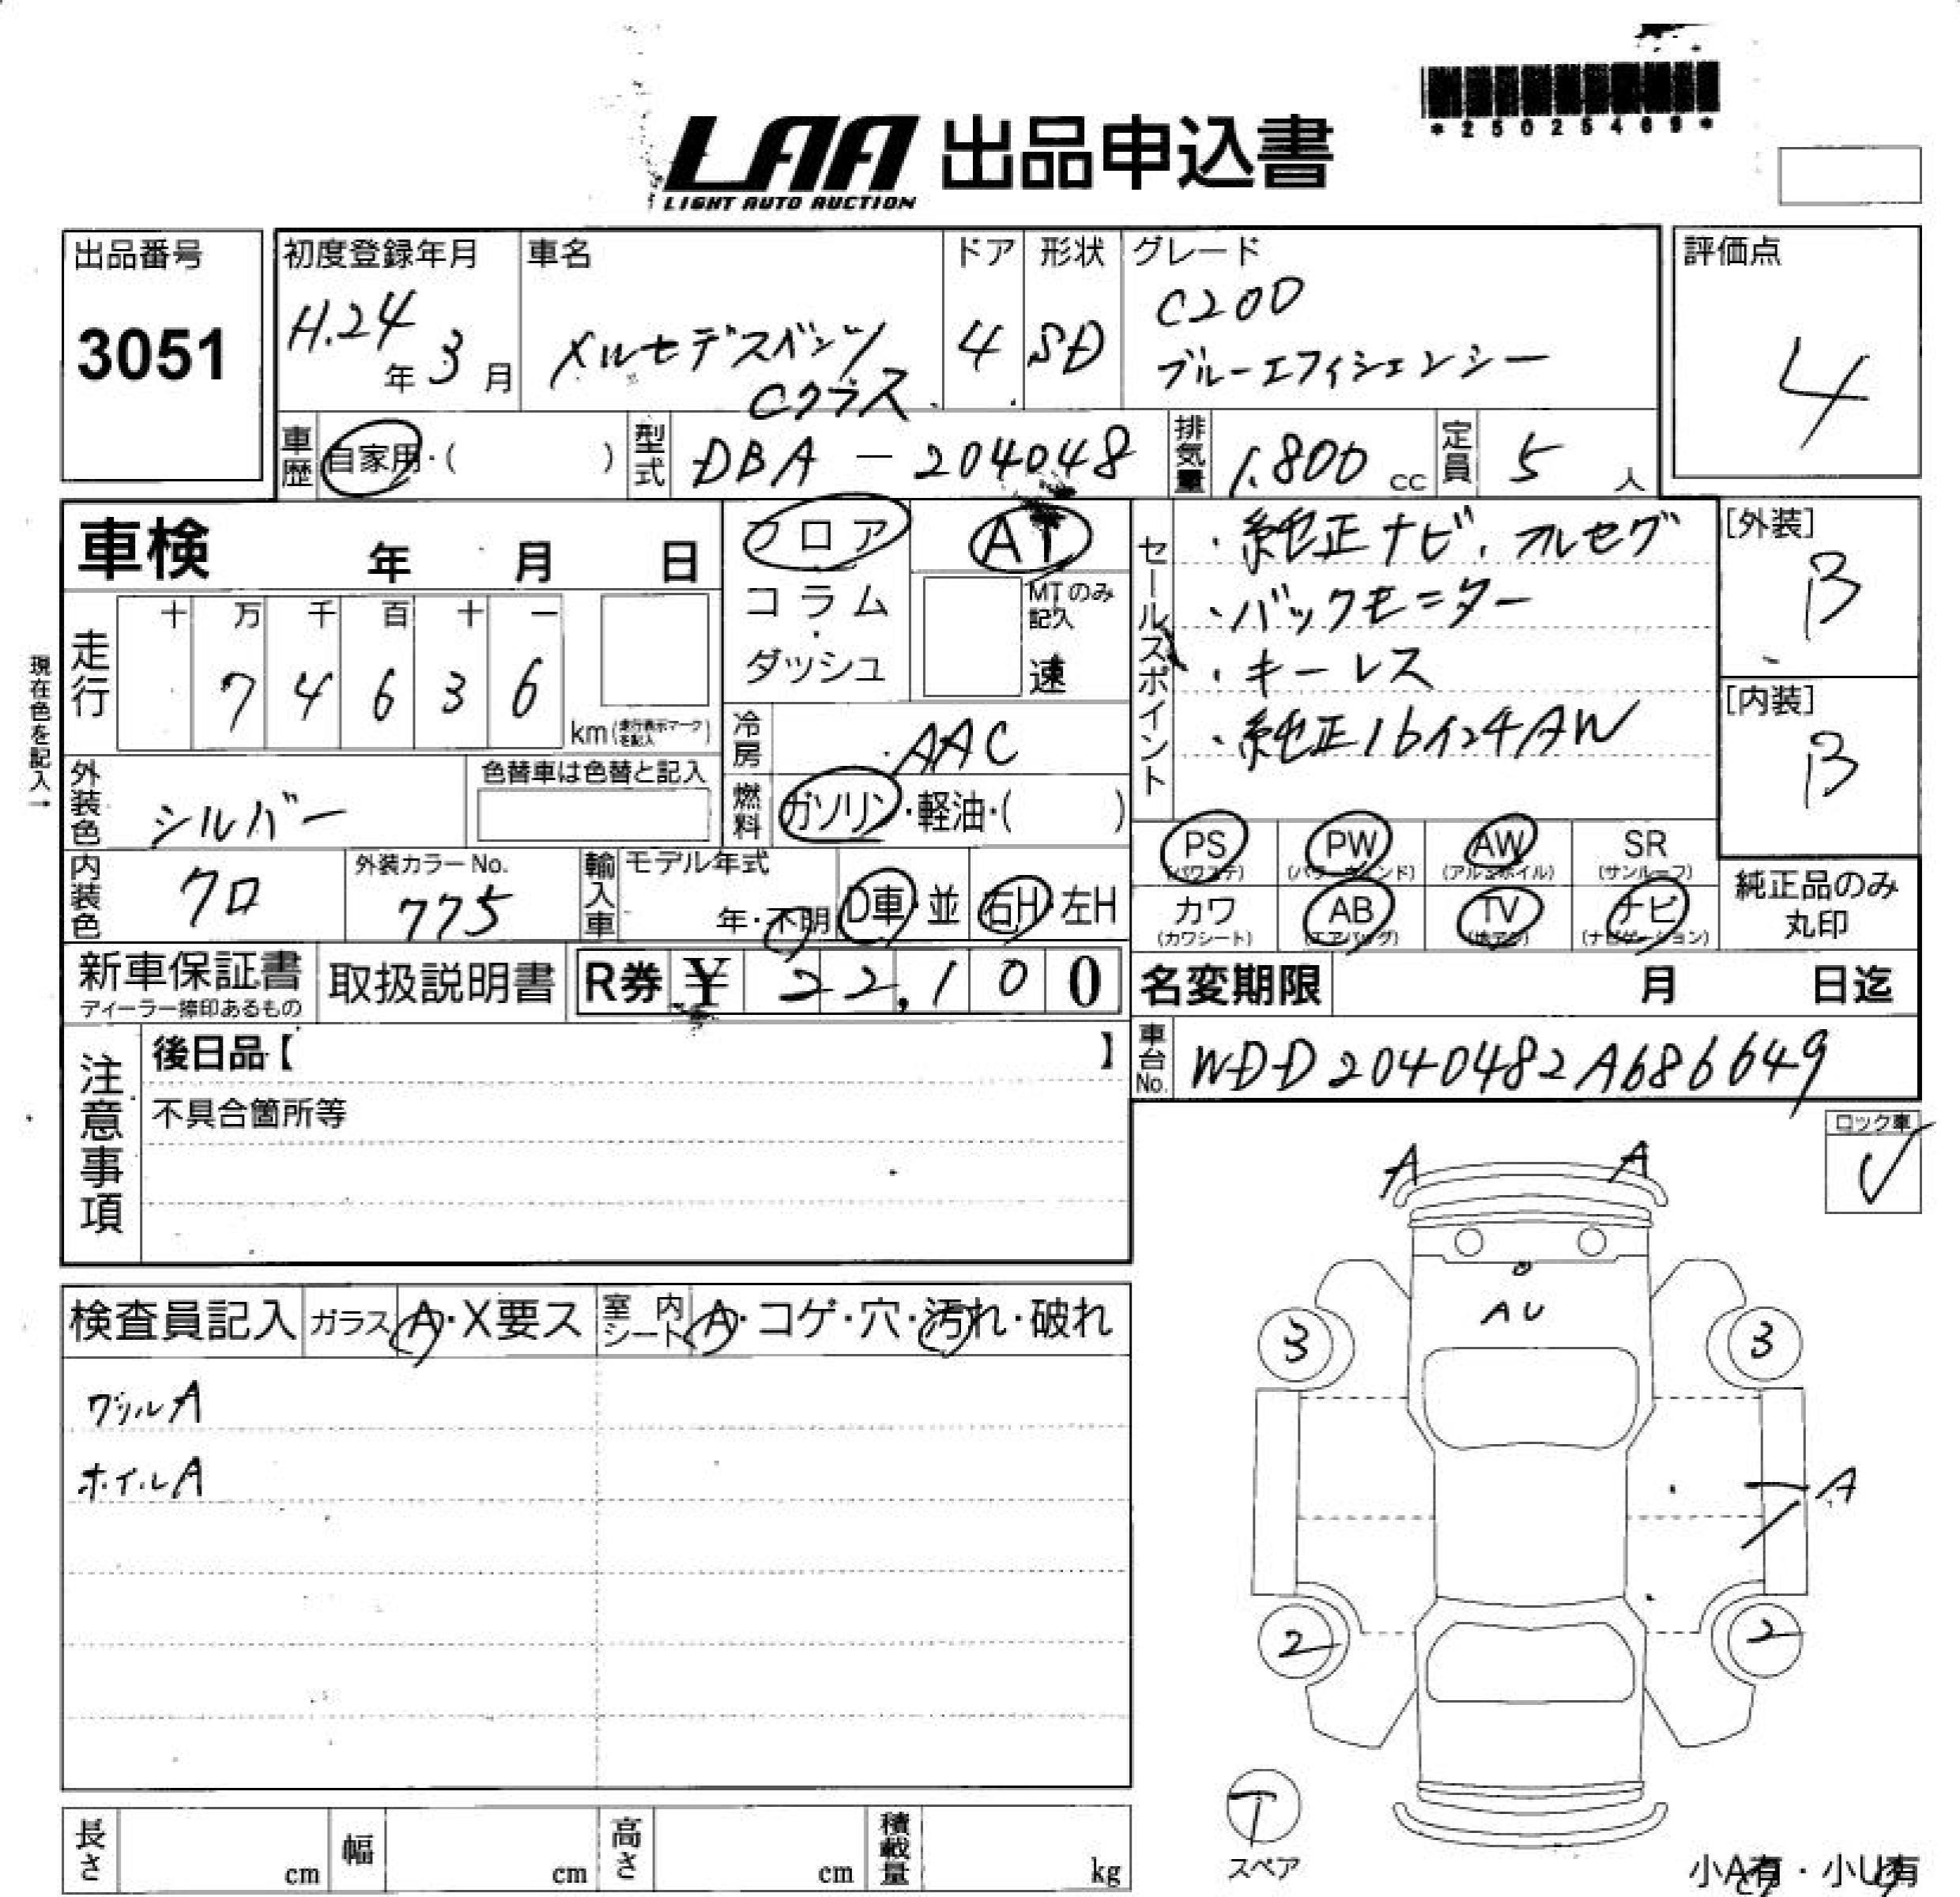 *25025469*
LAA 出品申込書
LIGHT AUTO AUCTION
出品番号
3051
初度登録年月
H.24年 3月
車名
メルセデスベンツ
Cクラス
ドア
4
形状
SD
グレード
C200
ブルーエフィシェンシー
評価点
4
車歴 自家用・( )
型式 DBA-204048
排気量 1.800 cc
定員 5人
車検 年 月 日
フロア
コラム
・
ダッシュ
AT
MTのみ
記入
速
セールスポイント
・純正ナビ、フルセグ
・バックモニター
・キーレス
・純正16インチAW
[外装]
B
[内装]
B
現在色を記入→
走行
十 万 千 百 十 一
7 4 6 3 6
km(走行表示マークを記入)
冷房 AAC
燃料 ガソリン・軽油・( )
外装色 シルバー
色替車は色替と記入
内装色 クロ
外装カラーNo.
775
輸入車
モデル年式
年・不明
D車・並
右H・左H
PS (パワステ)
PW (パワーウィンド)
AW (アルミホイル)
SR (サンルーフ)
カワ (カワシート)
AB (エアバッグ)
TV (地デジ)
ナビ (ナビゲーション)
純正品のみ
丸印
新車保証書
ディーラー捺印あるもの
取扱説明書
R券 ¥ 22,100
名変期限 月 日迄
車台No. WDD2040482A686649
注意事項
後日品【 】
不具合箇所等
ロック車
✓
検査員記入 ガラス A・X要ス 室内シート A・コゲ・穴・汚れ・破れ
ホイルA
A A
AU
3 3
A
2 2
T
スペア
長さ cm 幅 cm 高さ cm 積載量 kg
小A有・小U有